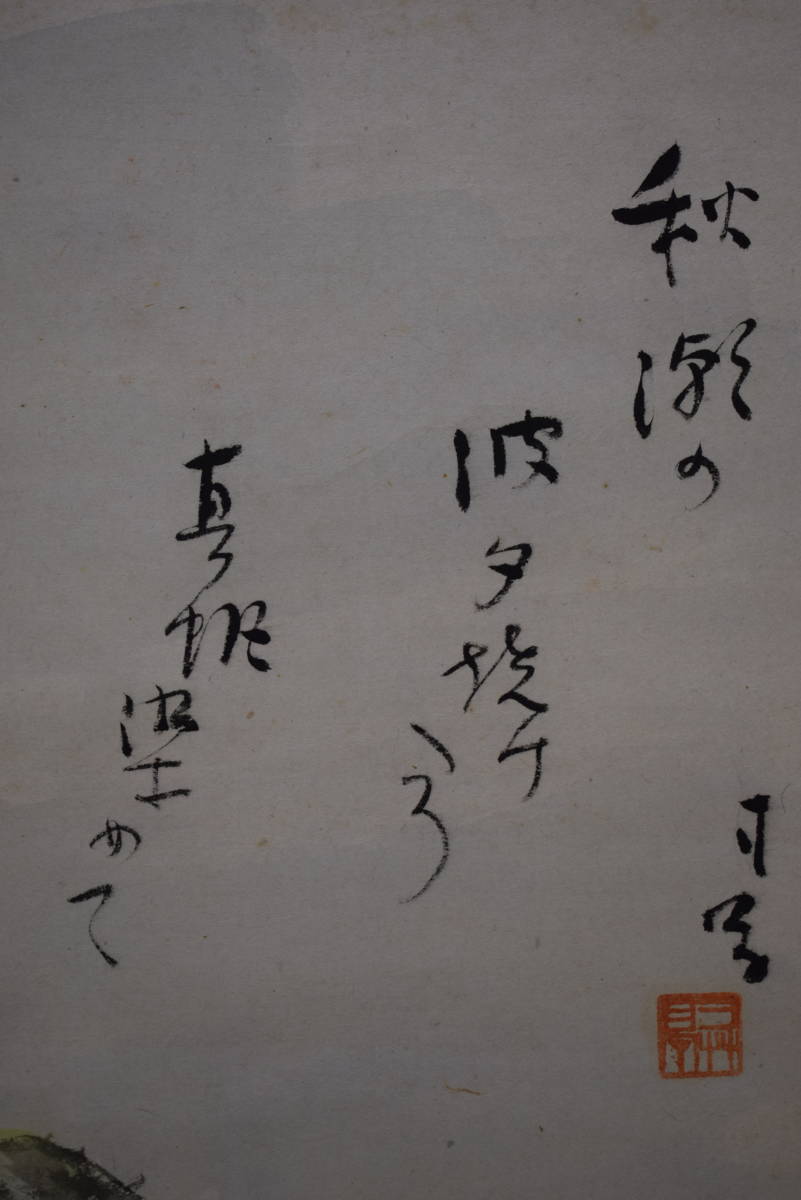 秋潮の
波夕焼け
真帆染めて